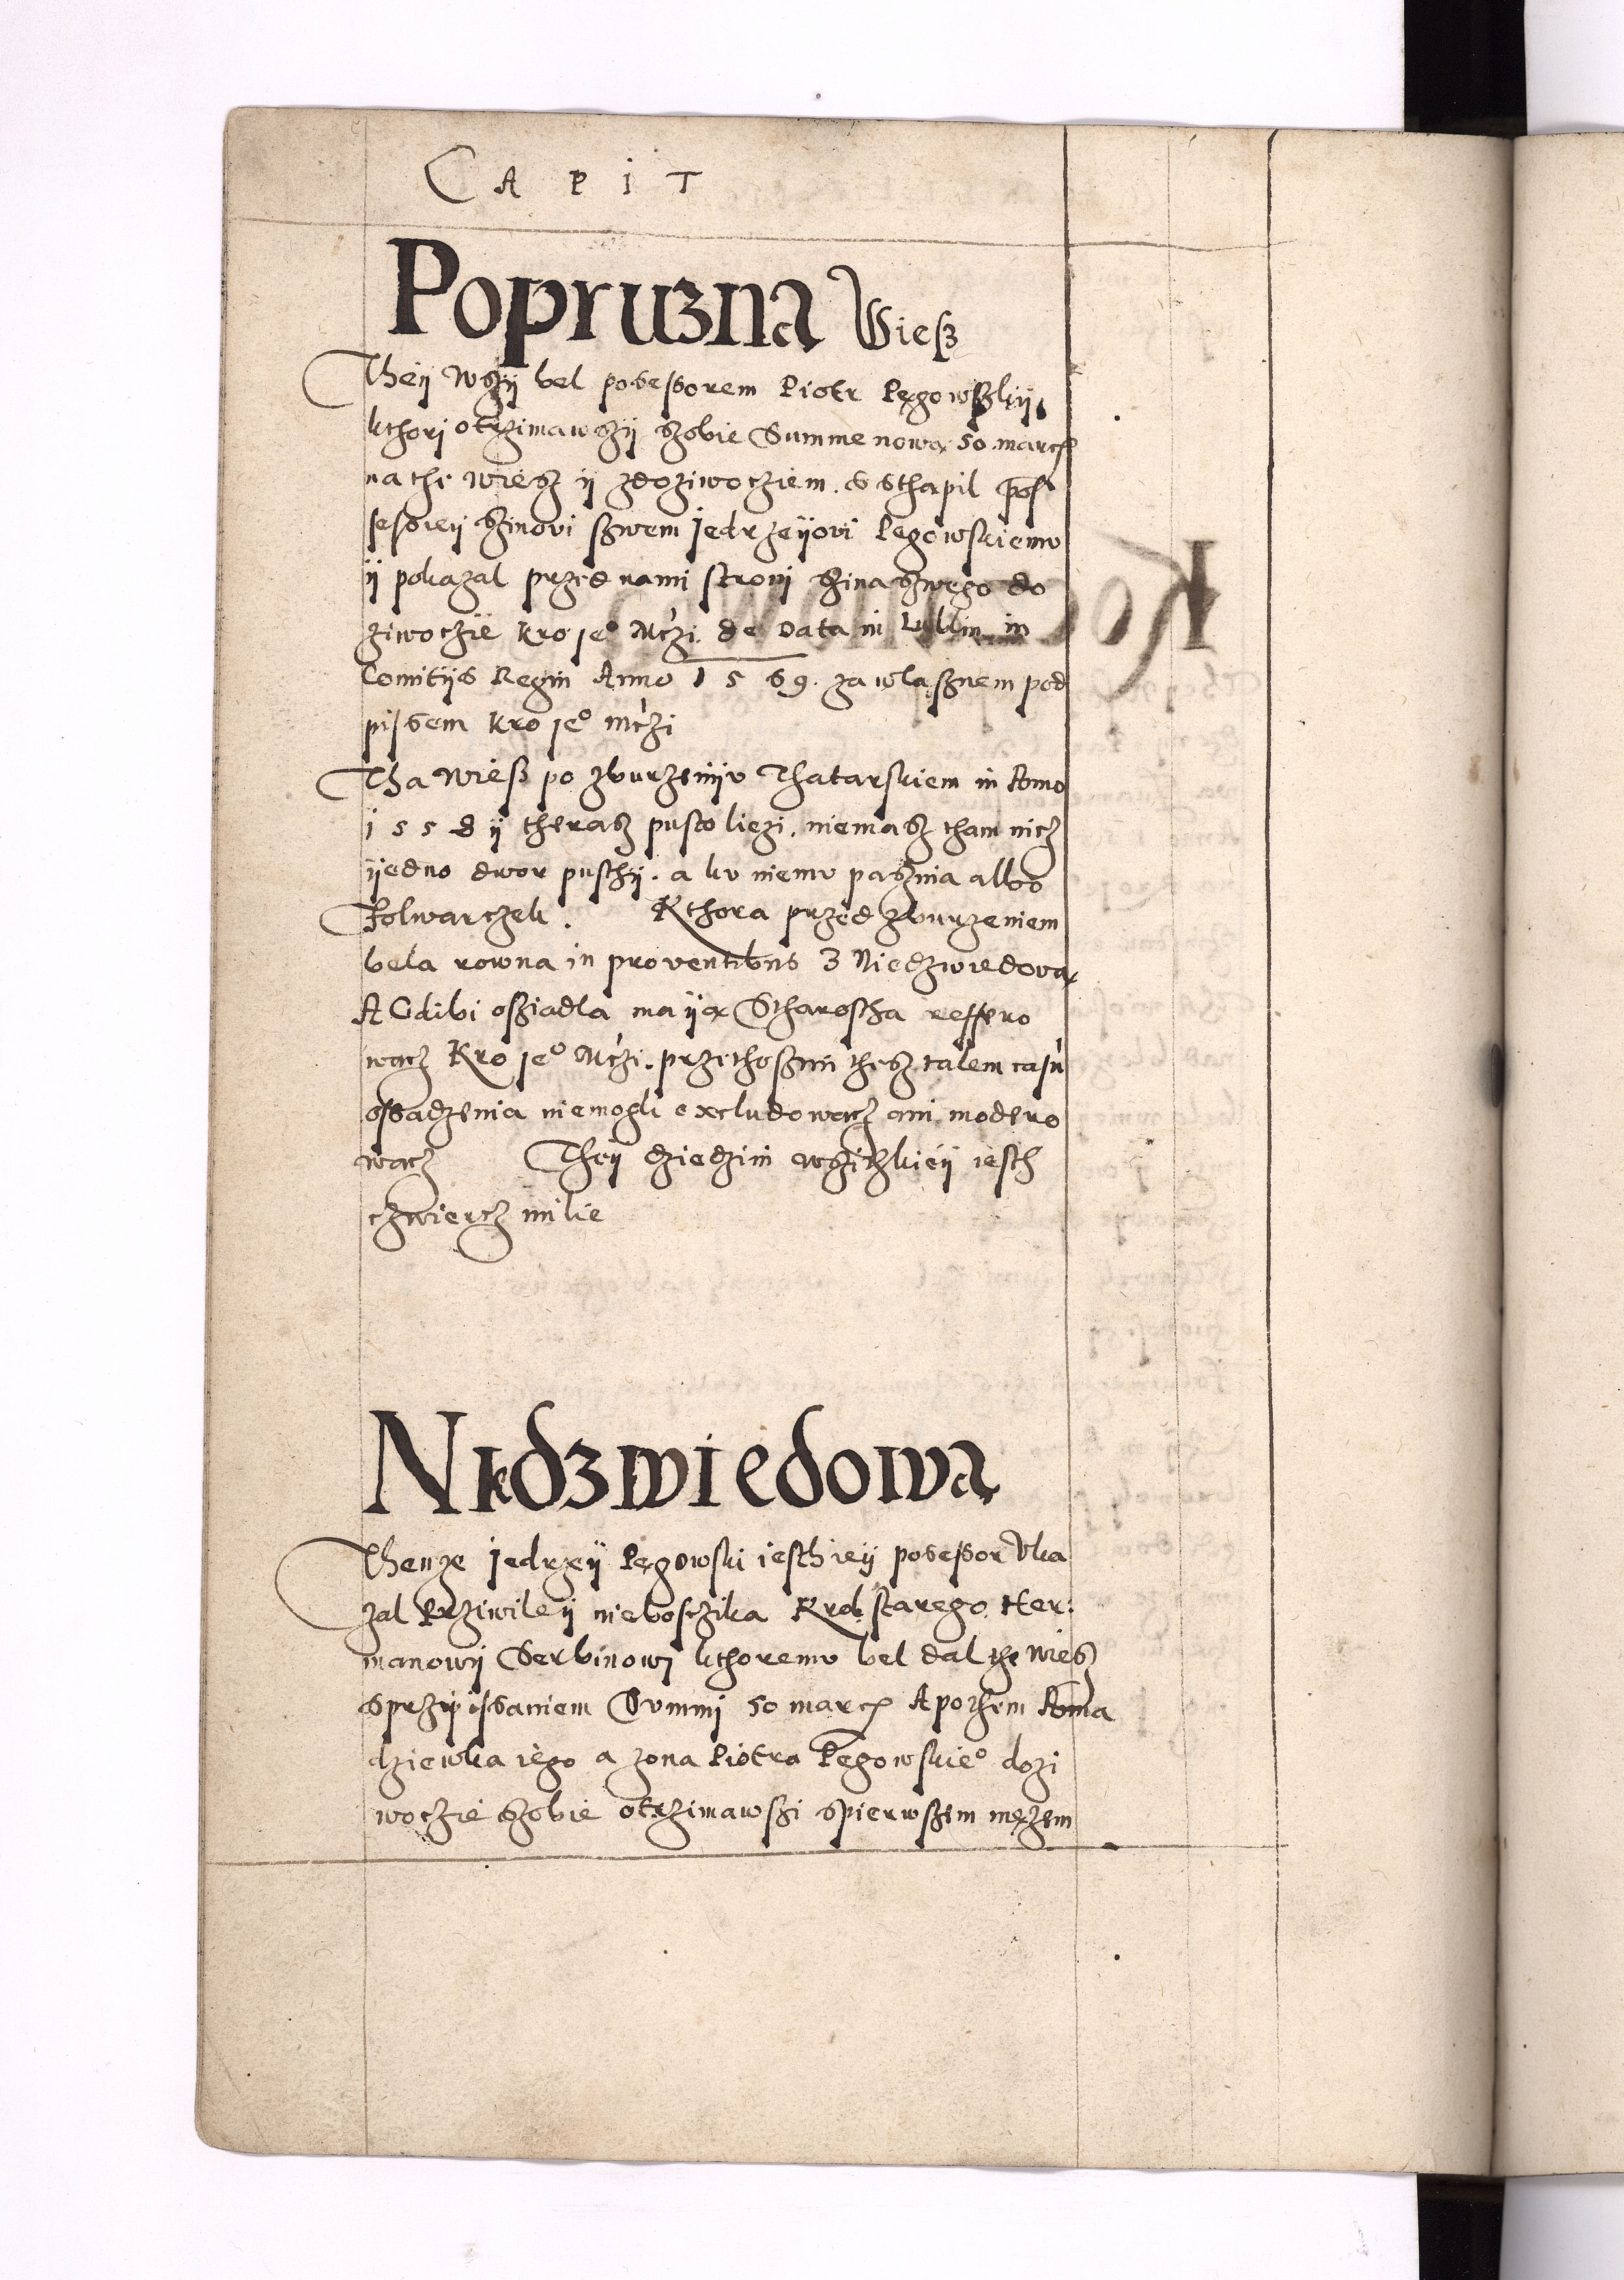 CAPIT
Popruzna Wiesz
Theÿ Wszÿ bel posessorem Piotr Pęgowszkiÿ
kthori otrzimawszÿ szobie Summe nową 50 marcz
na the wiesz ÿ zdoziwocziem. s sthąpil pos
sessieÿ szinovi szwem jedrzeÿovi Pęgowskiemv
ÿ pokazal przed nami stroni szina szwego do
ziwoczie Kro je° Mczi. de Data in Lublin in
Comitÿs Regni Anno 1569. za wlasznem pod
pissem Kro je° mczi
Tha Wiesz po zburzeniÿv Thatarskiem in Anno
155 8 ÿ therasz pusto liezi. niemasz tham nicz
ÿedno dwor puschÿ. a kv niemv pasznia albo
Folwarczek. Kthora przed zburzeniem
bela rowna in proventibus 3 Niedzwiedową
A Gdibi osziadla ma ÿą Starostha reffero
wacz Kro je° Mczi. przethoszmi thesz talem casu
ossadzenia niemogli excludowacz ani modero
wacz Theÿ dziedzini wszitzkieÿ iesth
czwiercz milie
Niedzwiedowa
Thenze jedrzeÿ Pęgowski iesth ieÿ posessor Vka
zal Prziwileÿ nieboszika Krol starego Her:
manowÿ Serbinowi kthoremv bel dal the Wiesz
sprzipissaniem Summi 50 marcz A pothem Anna
dziewka iego a zona Piotra Pęgowskie° dozi
woczie szobie otrzimawszi spierwszem męzem